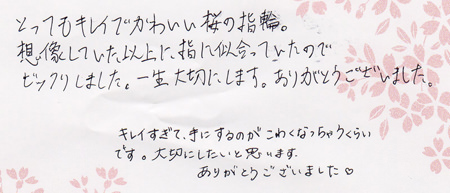 とってもキレイでかわいい桜の指輪。
想像していた以上に、指に似合っていたので
ビックリしました。一生大切にします。ありがとうございました。
キレイすぎて、手にするのがこわくなっちゃうくらい
です。大切にしたいと思います。
ありがとうございました♡